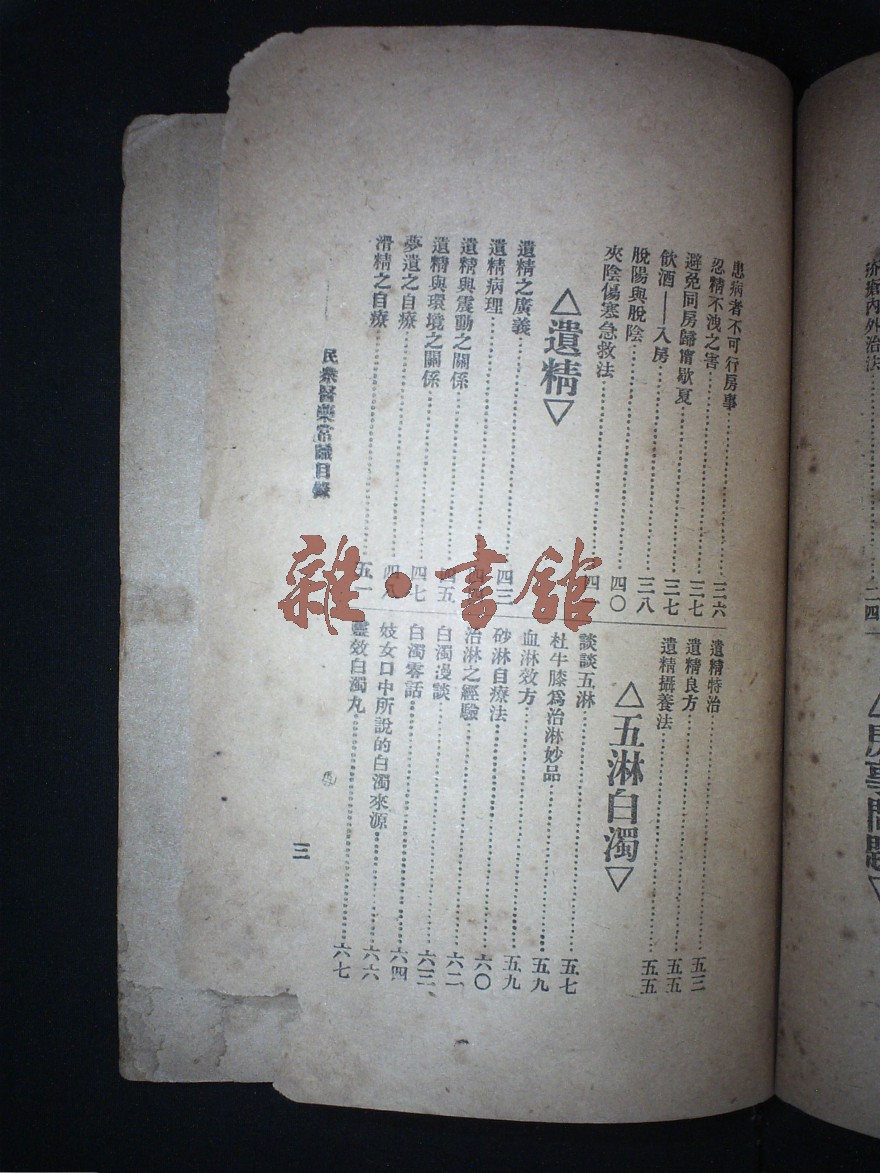 患病者不可行房事……三六
忍精不洩之害……三七
避免同房歸甯歇夏……三七
飲酒——入房……三八
脫陽與脫陰……四〇
夾陰傷寒急救法
△遺精▽
遺精之廣義……四三
遺精病理
遺精與震動之關係……四五
遺精與環境之關係……四七
夢遺之自療……四八
滑精之自療……五一
遺精特治……五三
遺精良方……五五
遺精攝養法……五五
△五淋白濁▽
談談五淋……五七
杜牛膝爲治淋妙品……五九
血淋效方……五九
砂淋自療法……六〇
治淋之經驗……六二
白濁漫談……六三
白濁零話……六四
妓女口中所說的白濁來源……六六
靈效白濁丸……六七
民衆醫藥常識目錄
三
雜·書館